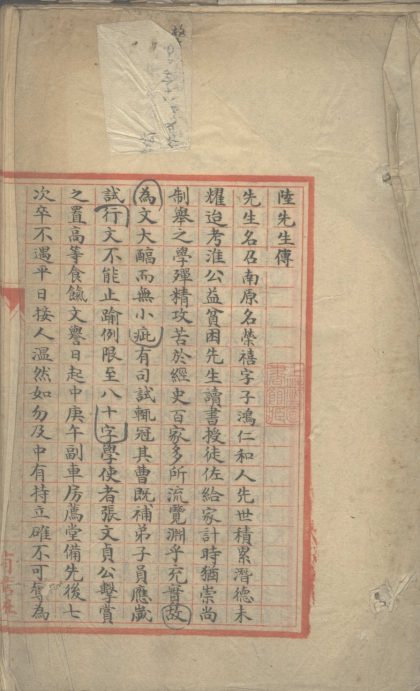 陸先生傳
先生名召南原名榮禧字子鴻仁和人先世積累潛德未
耀迨考淮公益貧困先生讀書授徒佐給家計時猶崇尚
制舉之學殫精攻苦於經史百家多所流覽淵乎充實故
為文大醇而無小疵有司試輒冠其曹既補弟子員應歲
試行文不能止踰例限至八十字學使者張文貞公擊賞
之置高等食餼文譽日起中庚午副車房薦堂備先後七
次卒不遇平日接人溫然如勿及中有持立確不可奪為